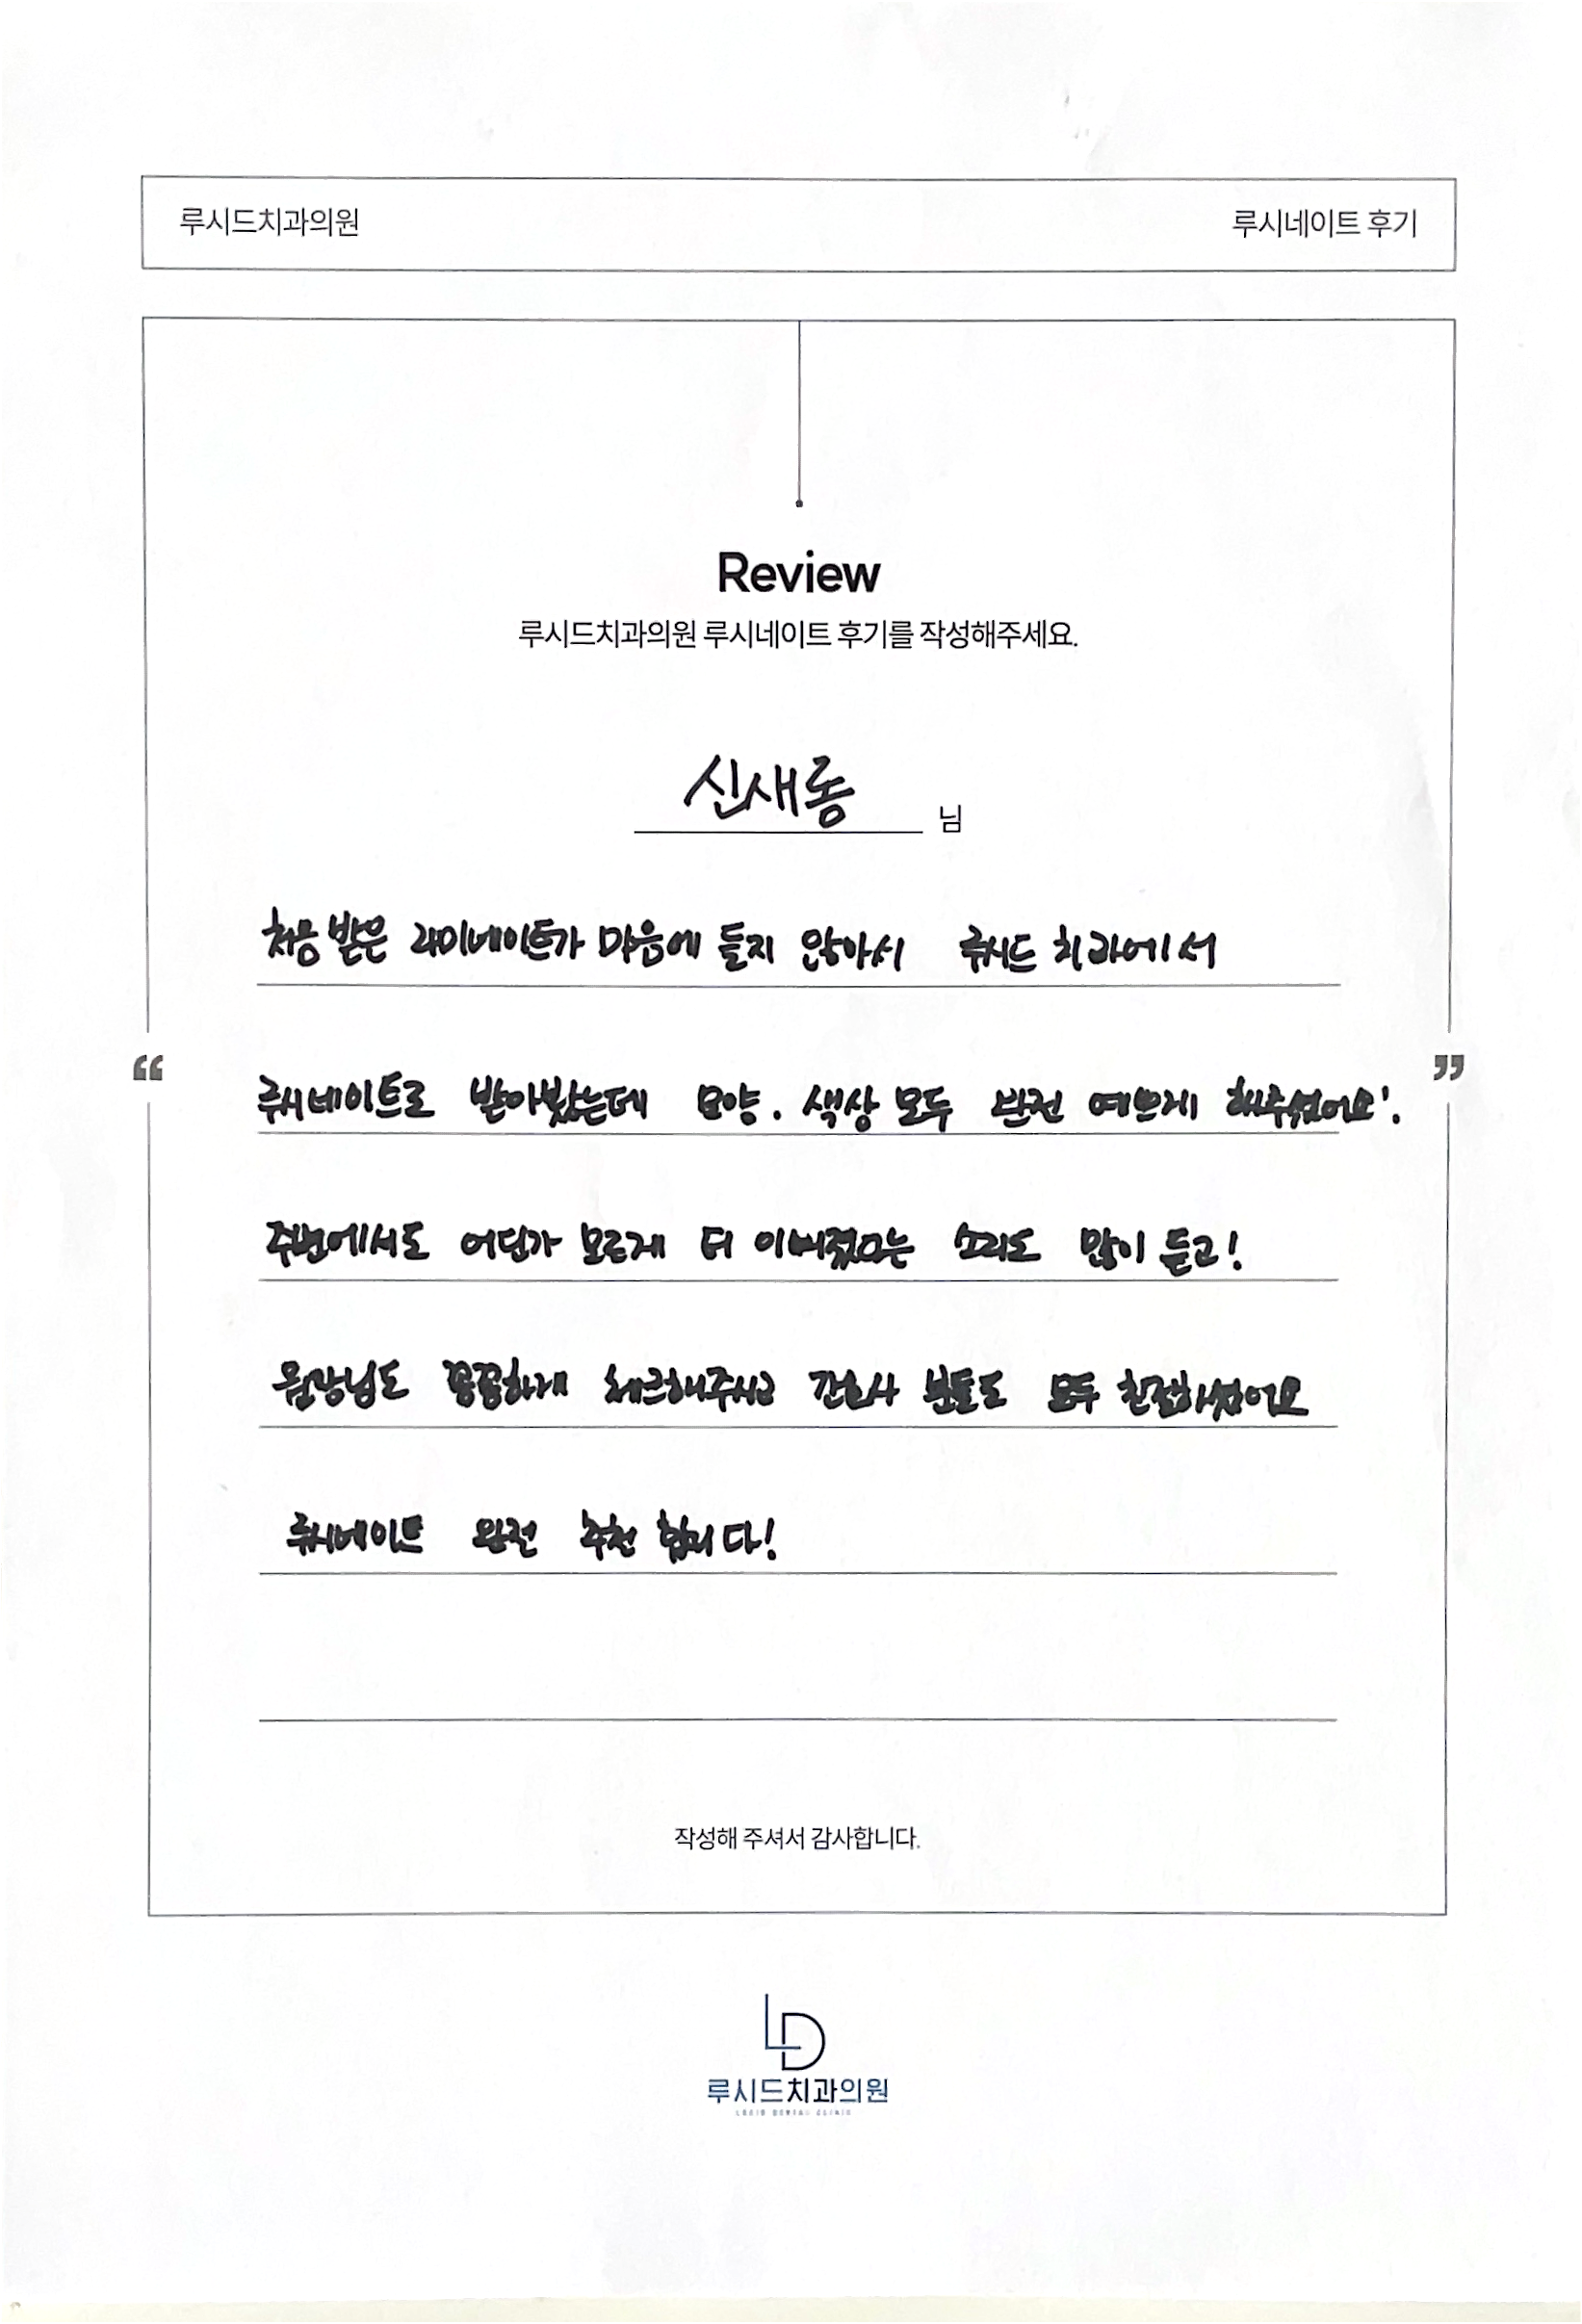 루시드치과의원
루시네이트 후기
Review
루시드치과의원 루시네이트 후기를 작성해주세요.
신새롬 님
처음 받은 라미네이트가 마음에 들지 않아서 루시드 치과에서
“ 루시네이트로 받아봤는데 모양. 색상 모두 완전 예쁘게 해주셨어요!. ”
주변에서도 어딘가 모르게 더 이뻐졌다는 소리도 많이 듣고!
원장님도 꼼꼼하게 체크해주시고 간호사 분들도 모두 친절하셨어요
루시네이트 완전 추천 합니다!
작성해 주셔서 감사합니다.
LD
루시드치과의원
LUCID DENTAL CLINIC